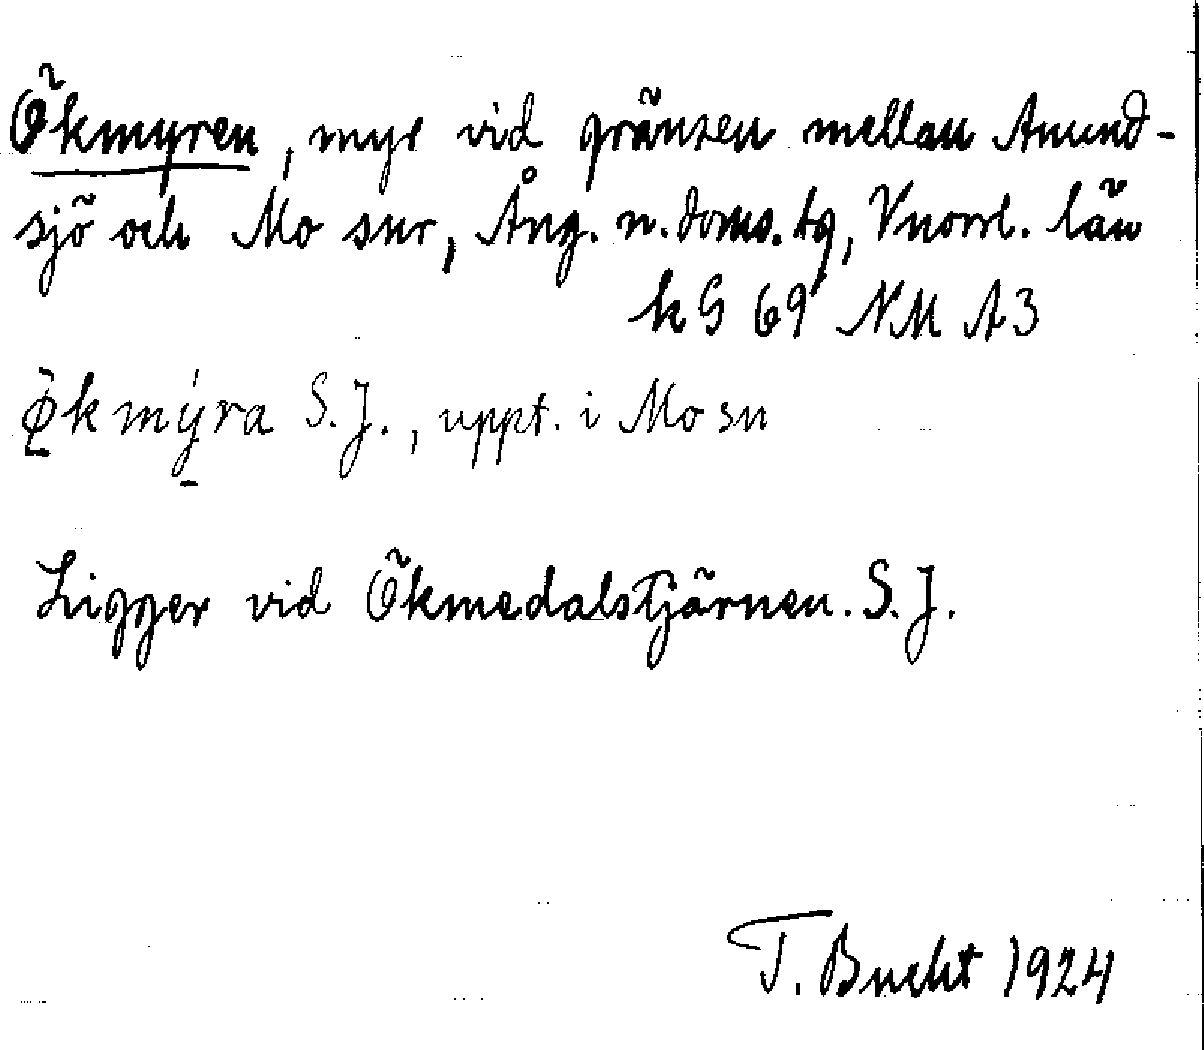 Ökmyren, myr vid gränsen mellan Anund-
sjö och Mo snr, Ång. n. doms. tg, Vnorrl. län
k G 69 NM A3
Økmýra S.J., uppt. i Mo sn
Ligger vid Ökmedalstjärnen. S. J.
T. Bucht 1924